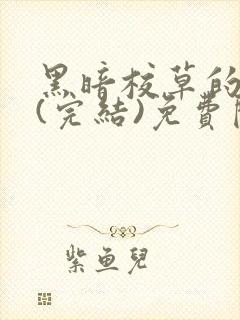 黑暗校草的
(完結)免費
紫魚兒